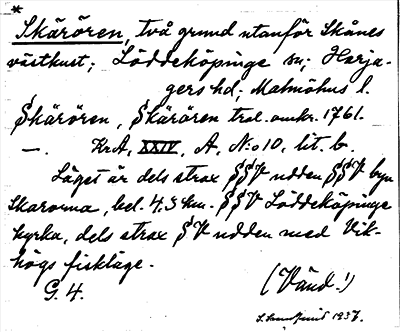 *
Skärören, två grund utanför Skånes
västkust; Löddeköpinge sn; Harja-
gers hd; Malmöhus l.
Skärören, Skärören trol. omkr. 1761.
—. KrA, XXIV, A, N:o 10, lit. b.
Läget är dels strax SSV udden SSV byn
Skarorna, bel. 4,3 km. SSV Löddeköpinge
kyrka, dels strax SV udden med Vik-
högs fiskläge.
G. 4. (Vänd!)
1937.